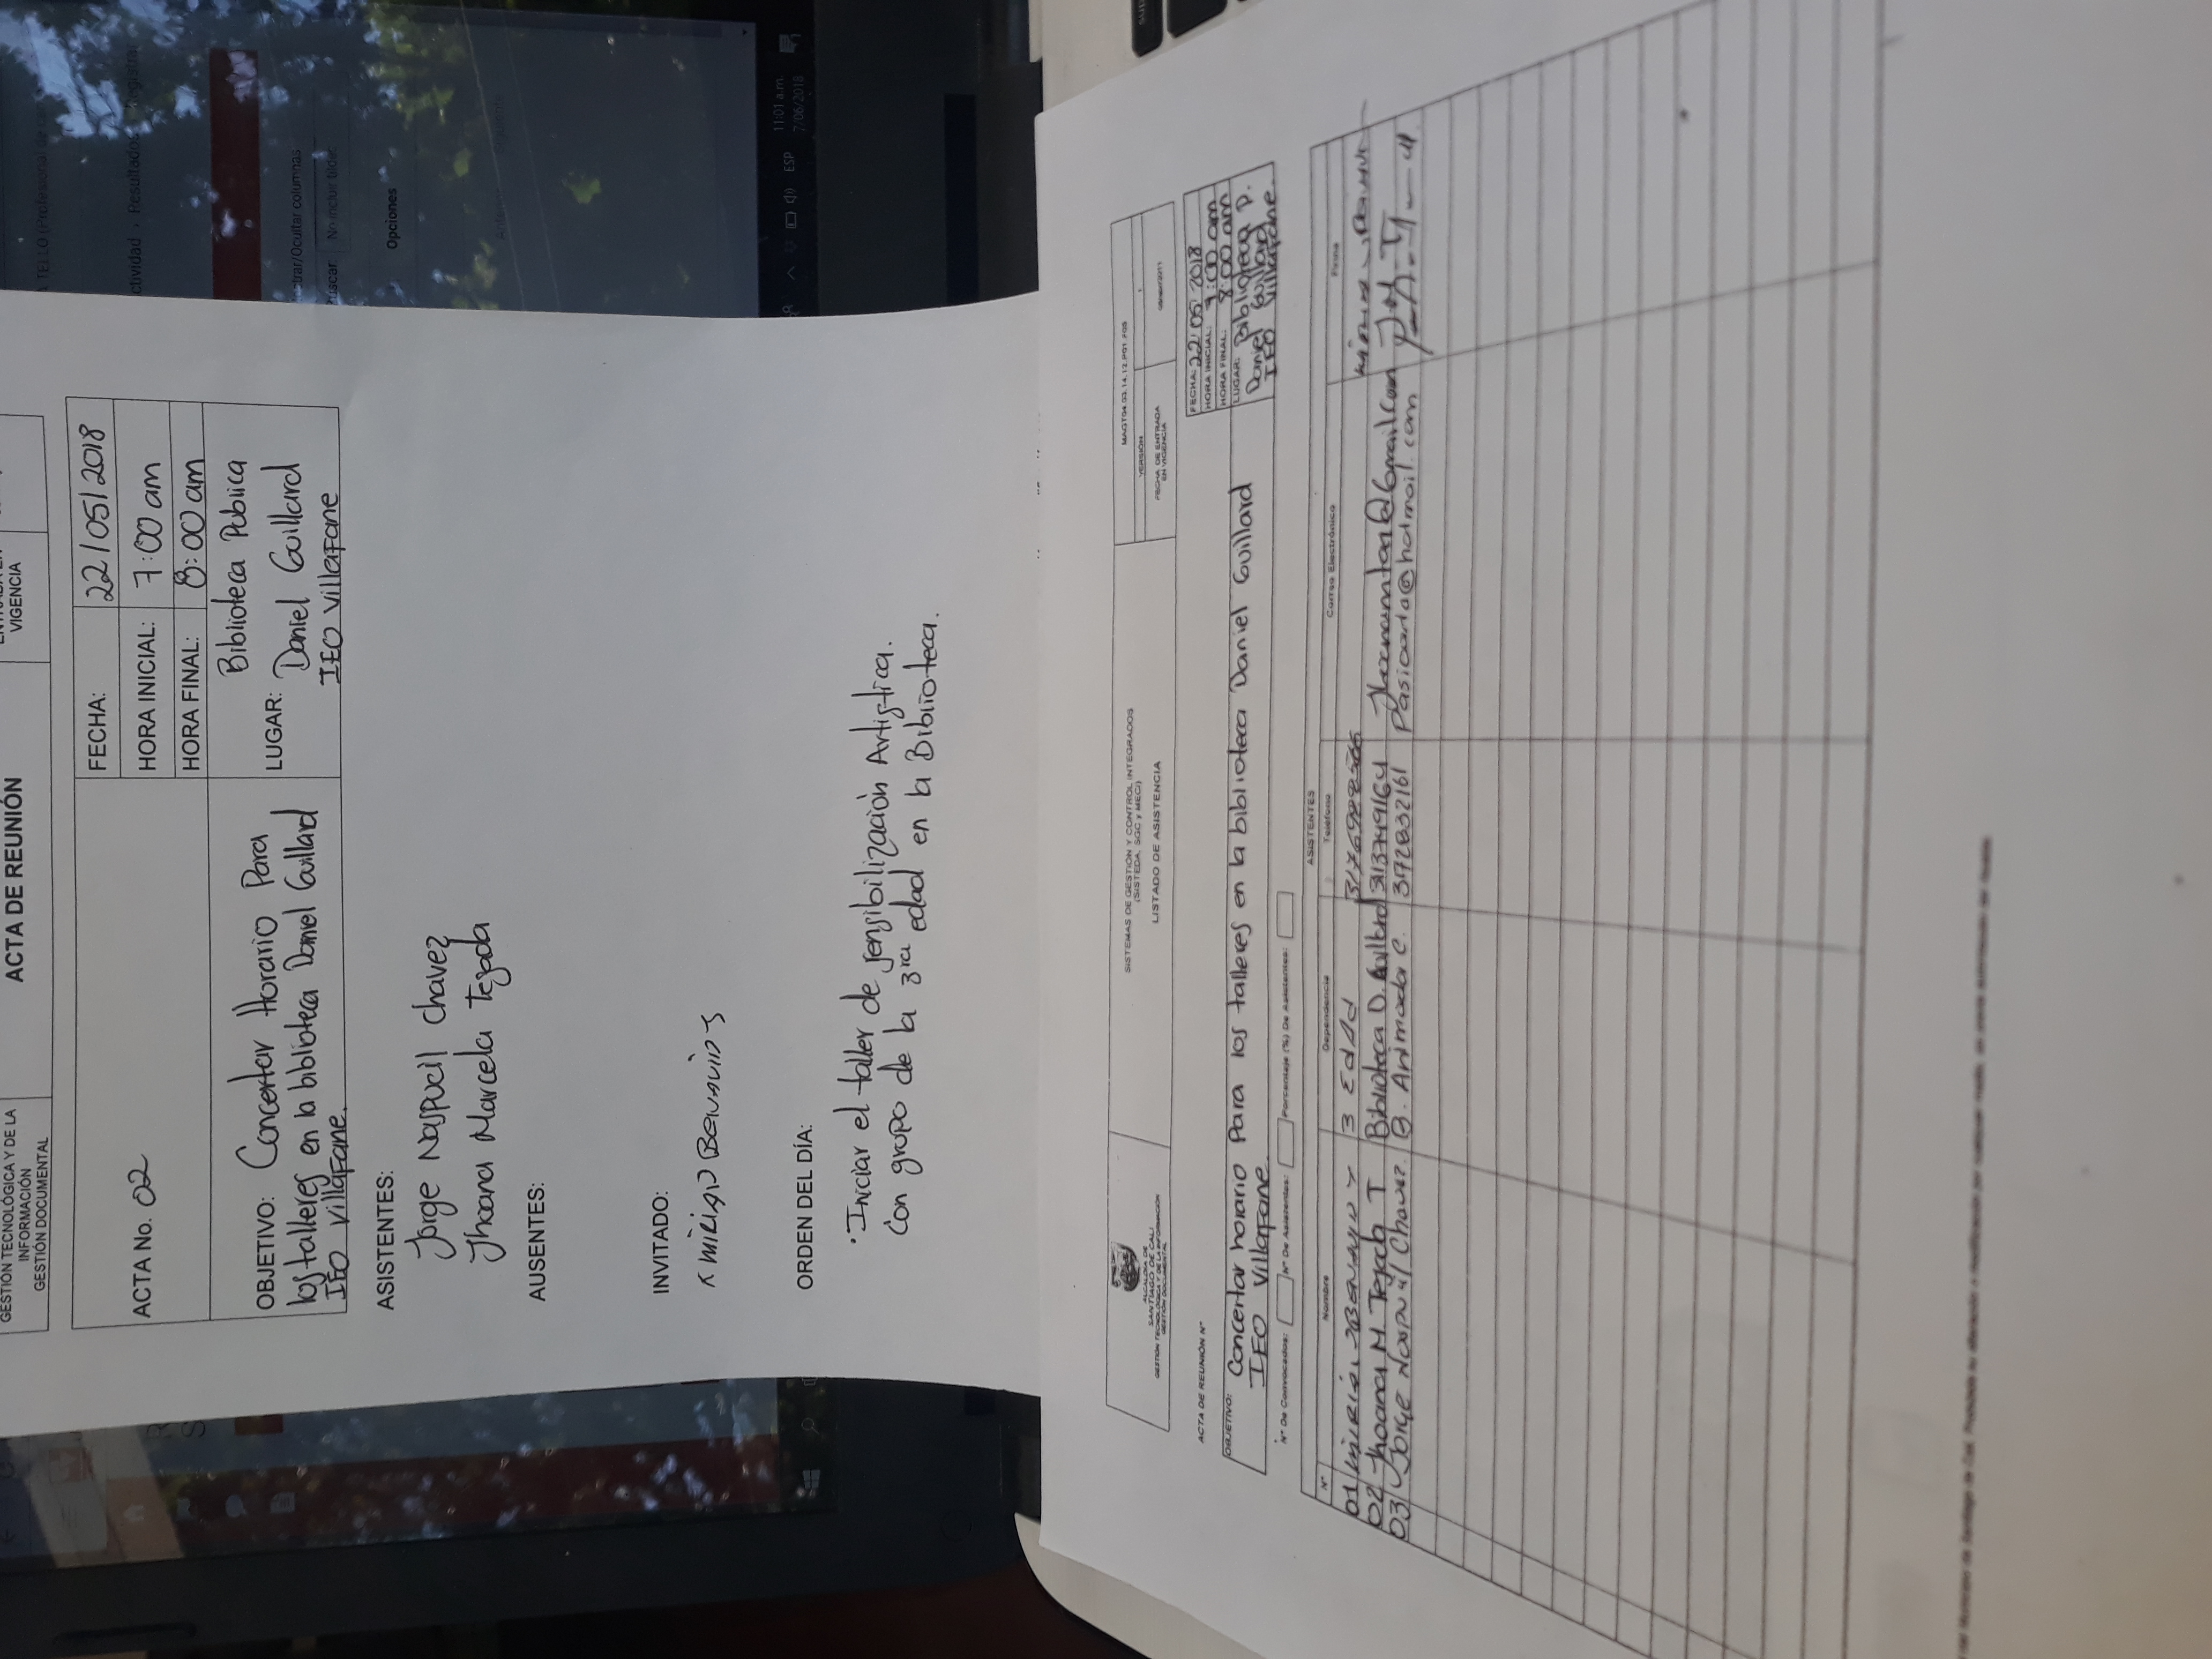 GESTIÓN TECNOLÓGICA Y DE LA
INFORMACIÓN
GESTIÓN DOCUMENTAL
ACTA DE REUNIÓN
VIGENCIA
ACTA No. 02
FECHA: 22/05/2018
HORA INICIAL: 7:00 am
HORA FINAL: 8:00 am
OBJETIVO: Concertar Horario Para
los talleres en la biblioteca Daniel Guillard
IEO Villafane.
LUGAR: Biblioteca Publica
Daniel Guillard
IEO Villafane
ASISTENTES:
Jorge Naspucil Chavez
Jhoana Marcela Tejada
AUSENTES:
INVITADO:
ORDEN DEL DÍA:
· Iniciar el taller de sensibilización Artistica.
Con grupo de la 3ra edad en la Biblioteca.
TELLO (Profesional de
ctividad › Resultados › Registrar
trar/Ocultar columnas
Buscar: No incluir tildes
Opciones
Anterior Siguiente
ESP
11:01 a.m.
7/06/2018
ALCALDÍA DE
SANTIAGO DE CALI
GESTIÓN TECNOLÓGICA Y DE LA INFORMACIÓN
GESTIÓN DOCUMENTAL
SISTEMAS DE GESTIÓN Y CONTROL INTEGRADOS
(SISTEDA, SGC y MECI)
LISTADO DE ASISTENCIA
MAGT04.03.14.12.P01.F05
VERSIÓN 1
FECHA DE ENTRADA
EN VIGENCIA
ACTA DE REUNIÓN N°
FECHA: 22/05/2018
HORA INICIAL: 7:00 am
HORA FINAL: 8:00 am
LUGAR: Biblioteca P.
Daniel Guillard
IEO Villafane.
OBJETIVO: Concertar horario Para los talleres en la biblioteca Daniel Guillard
IEO Villafane.
N° De Convocados: N° De Asistentes: Porcentaje (%) De Asistentes:
ASISTENTES
N° Nombre Dependencia Teléfono Correo Electrónico Firma
01 3 Edad
02 Jhoana M Tejada T Biblioteca D. Guillard 3113749164
03 Jorge Naspucil Chavez. B. Animada C. 372832161
del Municipio de Santiago de Cali. Prohibida su alteración o modificación por cualquier medio, sin previa autorización del